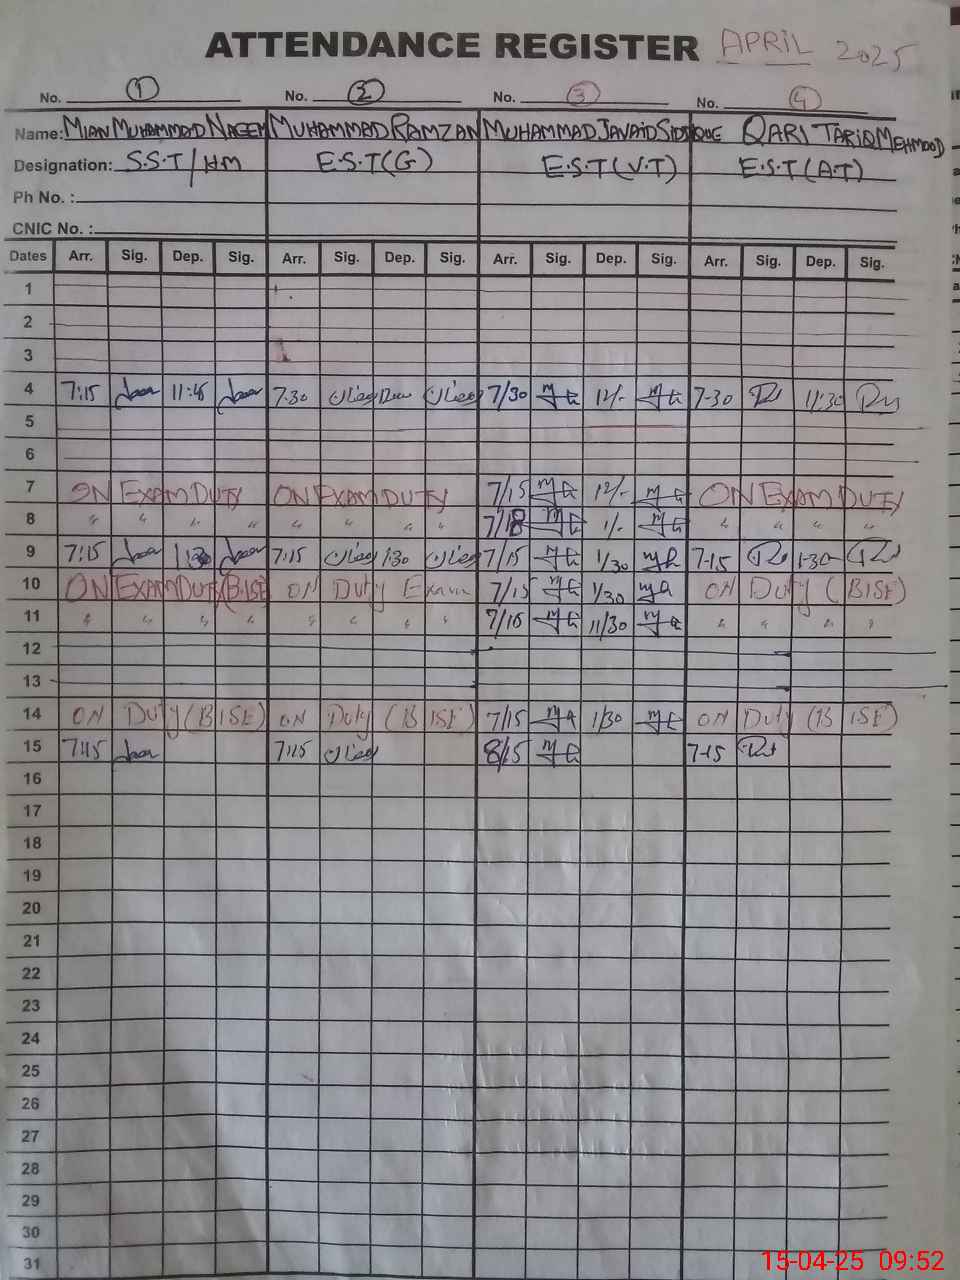 ATTENDANCE REGISTER APRIL 2025
No. 1 No. 2 No. 3 No. 4
Name: MIAN MUHAMMAD NAEEM MUHAMMAD RAMZAN MUHAMMAD JAVAID SIDDIQUE QARI TARIQ MEHMOOD
Designation: S.S.T/HM E.S.T(G) E.S.T(V.T) E.S.T(A.T)
Ph No. :
CNIC No. :
Dates Arr. Sig. Dep. Sig. Arr. Sig. Dep. Sig. Arr. Sig. Dep. Sig. Arr. Sig. Dep. Sig.
1
2
3
4 7:15 11:45 7-30 رمضان رمضان 7/30 12/- 7-30 11:30
5
6
7 ON EXAM DUTY ON EXAM DUTY 7/15 12/- ON EXAM DUTY
8 " " " " " " " " 7/18 1/- " " " "
9 7:15 1:30 7:15 رمضان 1:30 رمضان 7/15 1/30 7-15 1-30
10 ON EXAM DUTY (BISE ON Duty Exam 7/15 1/30 ON DUTY (BISE)
11 " " " " " " " " 7/16 11/30 " " " "
12
13
14 ON DUTY (BISE) ON Duty (BISE) 7/15 1/30 ON DUTY (BISE)
15 7:15 7:15 رمضان 8/15 7-15
16
17
18
19
20
21
22
23
24
25
26
27
28
29
30
31
15-04-25 09:52